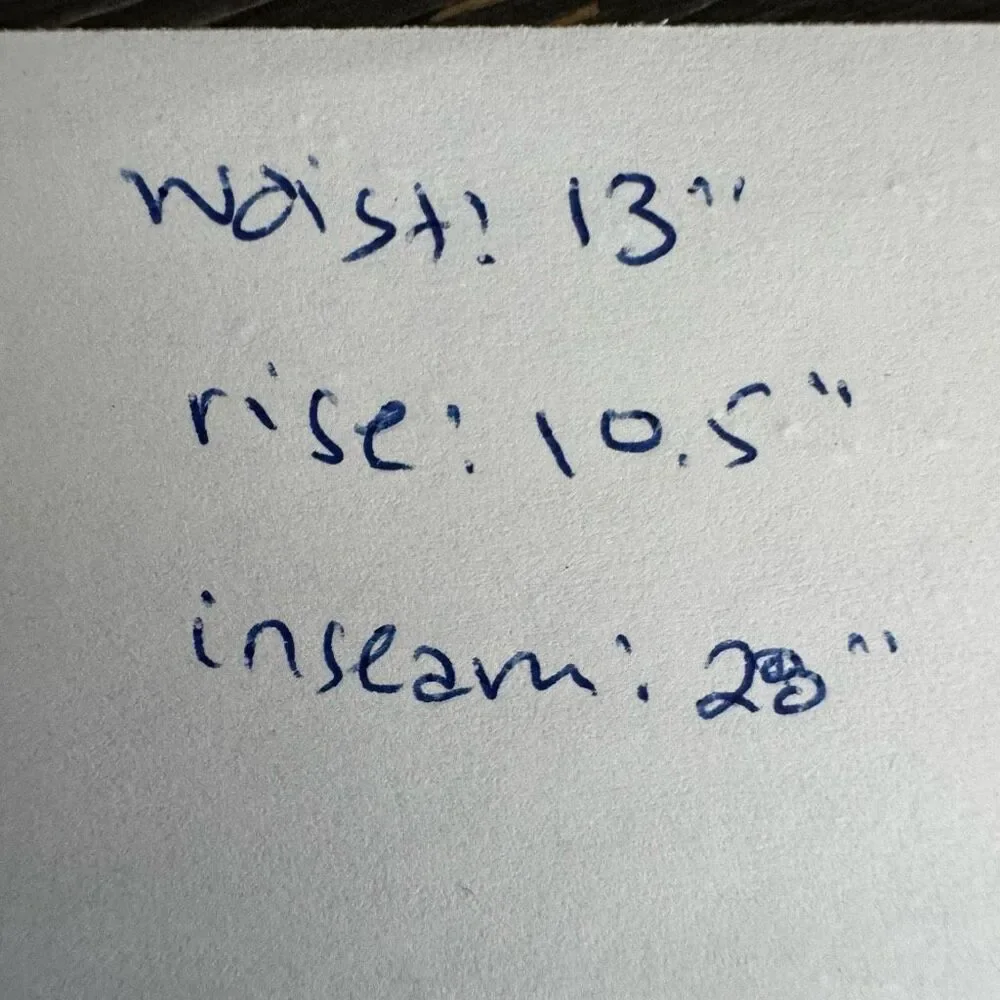 waist: 13"
rise: 10.5"
inseam: 28"